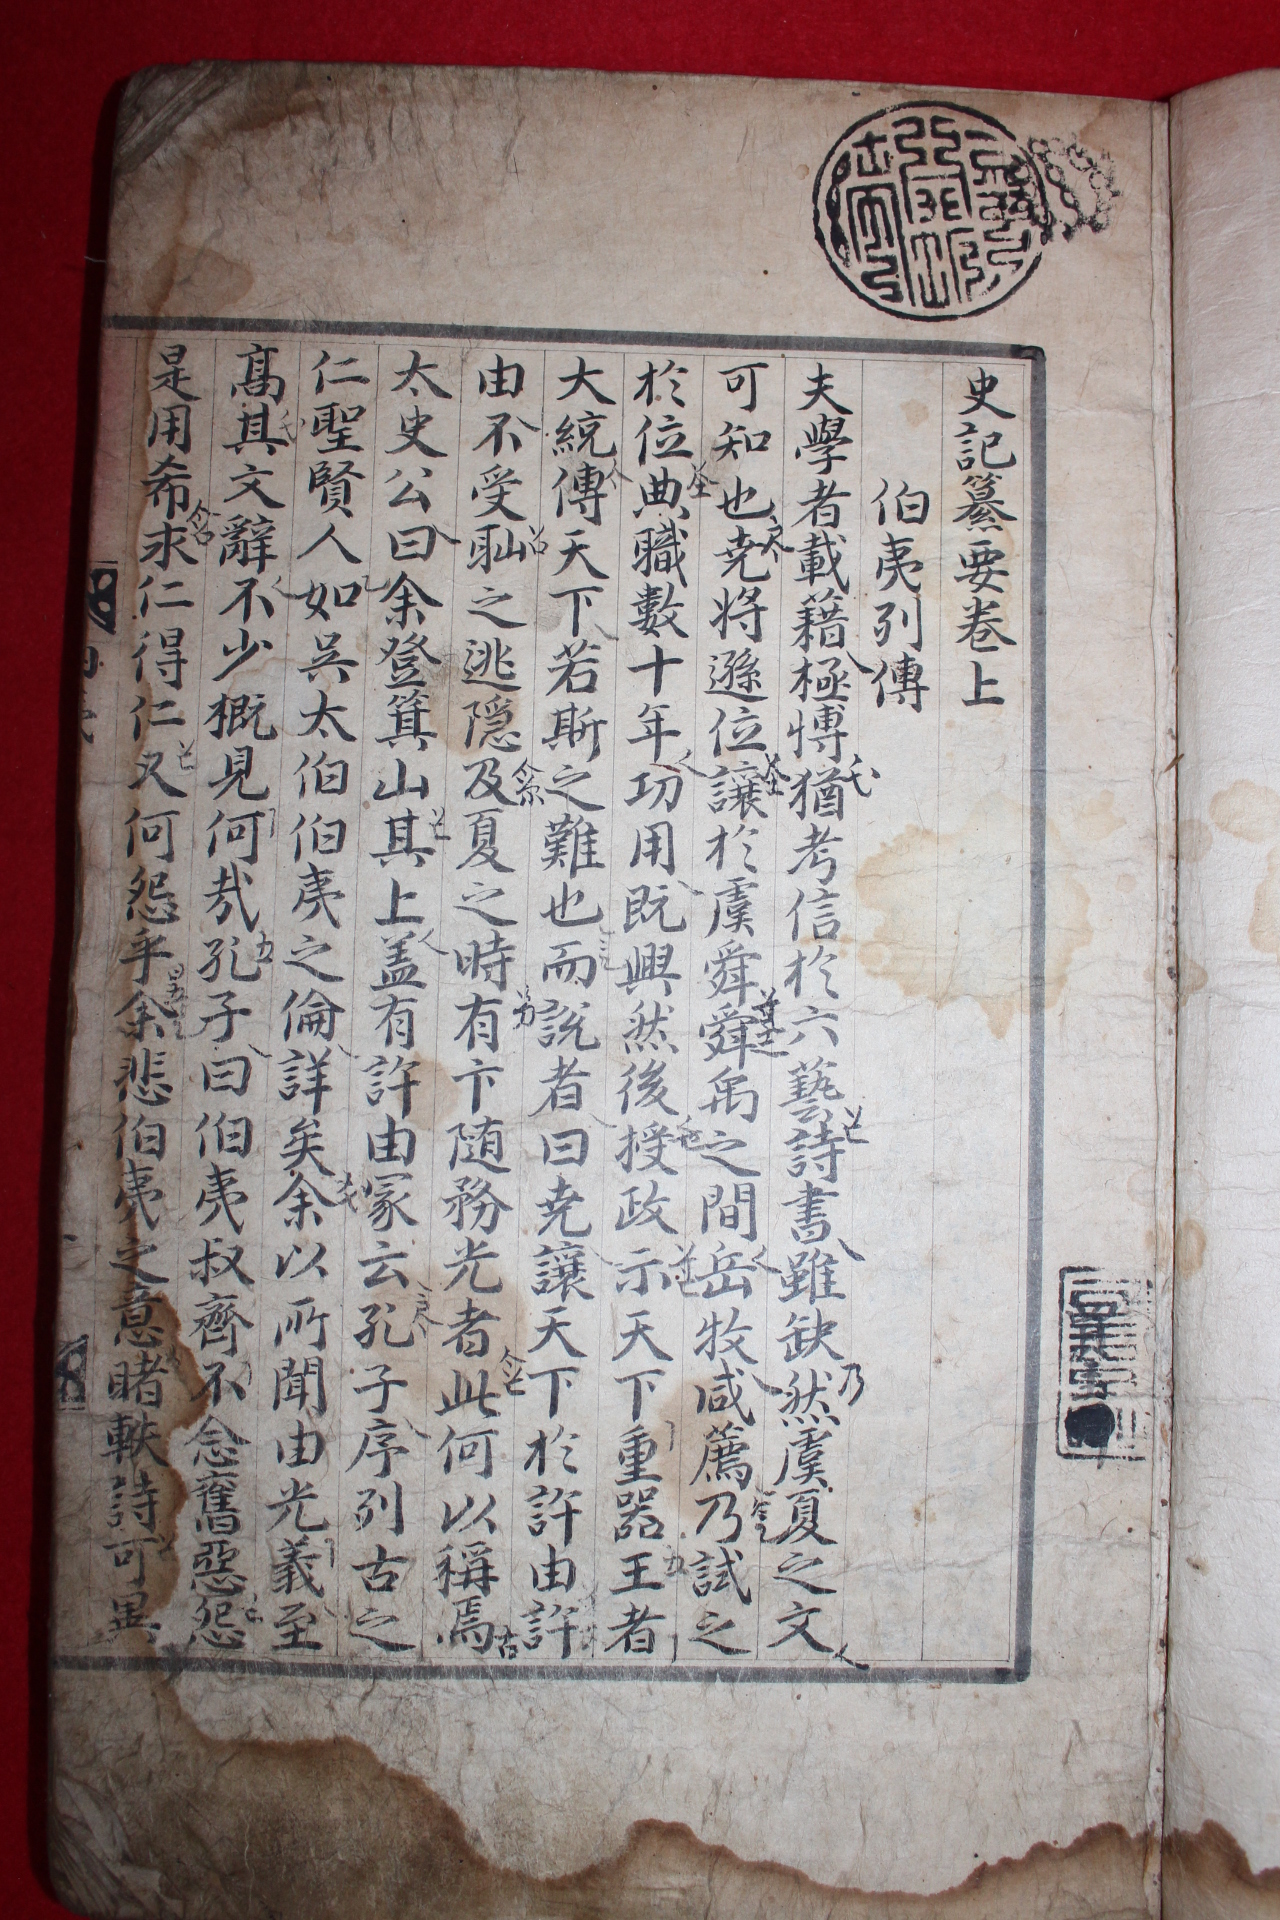 史記纂要卷上
伯夷列傳
夫學者載籍極愽猶考信於六藝詩書雖缺然虞夏之文
可知也尭將遜位讓於虞舜舜禹之間岳牧咸薦乃試之
於位典職數十年功用既興然後授政示天下重器王者
大統傳天下若斯之難也而說者曰尭讓天下於許由許
由不受耻之逃隠及夏之時有卞随務光者此何以稱焉
太史公曰余登箕山其上盖有許由冢云孔子序列古之
仁聖賢人如吳太伯伯夷之倫詳矣余以所聞由光義至
髙其文辭不少概見何㢤孔子曰伯夷叔齊不念舊惡怨
是用希求仁得仁又何怨乎余悲伯夷之意睹軼詩可異